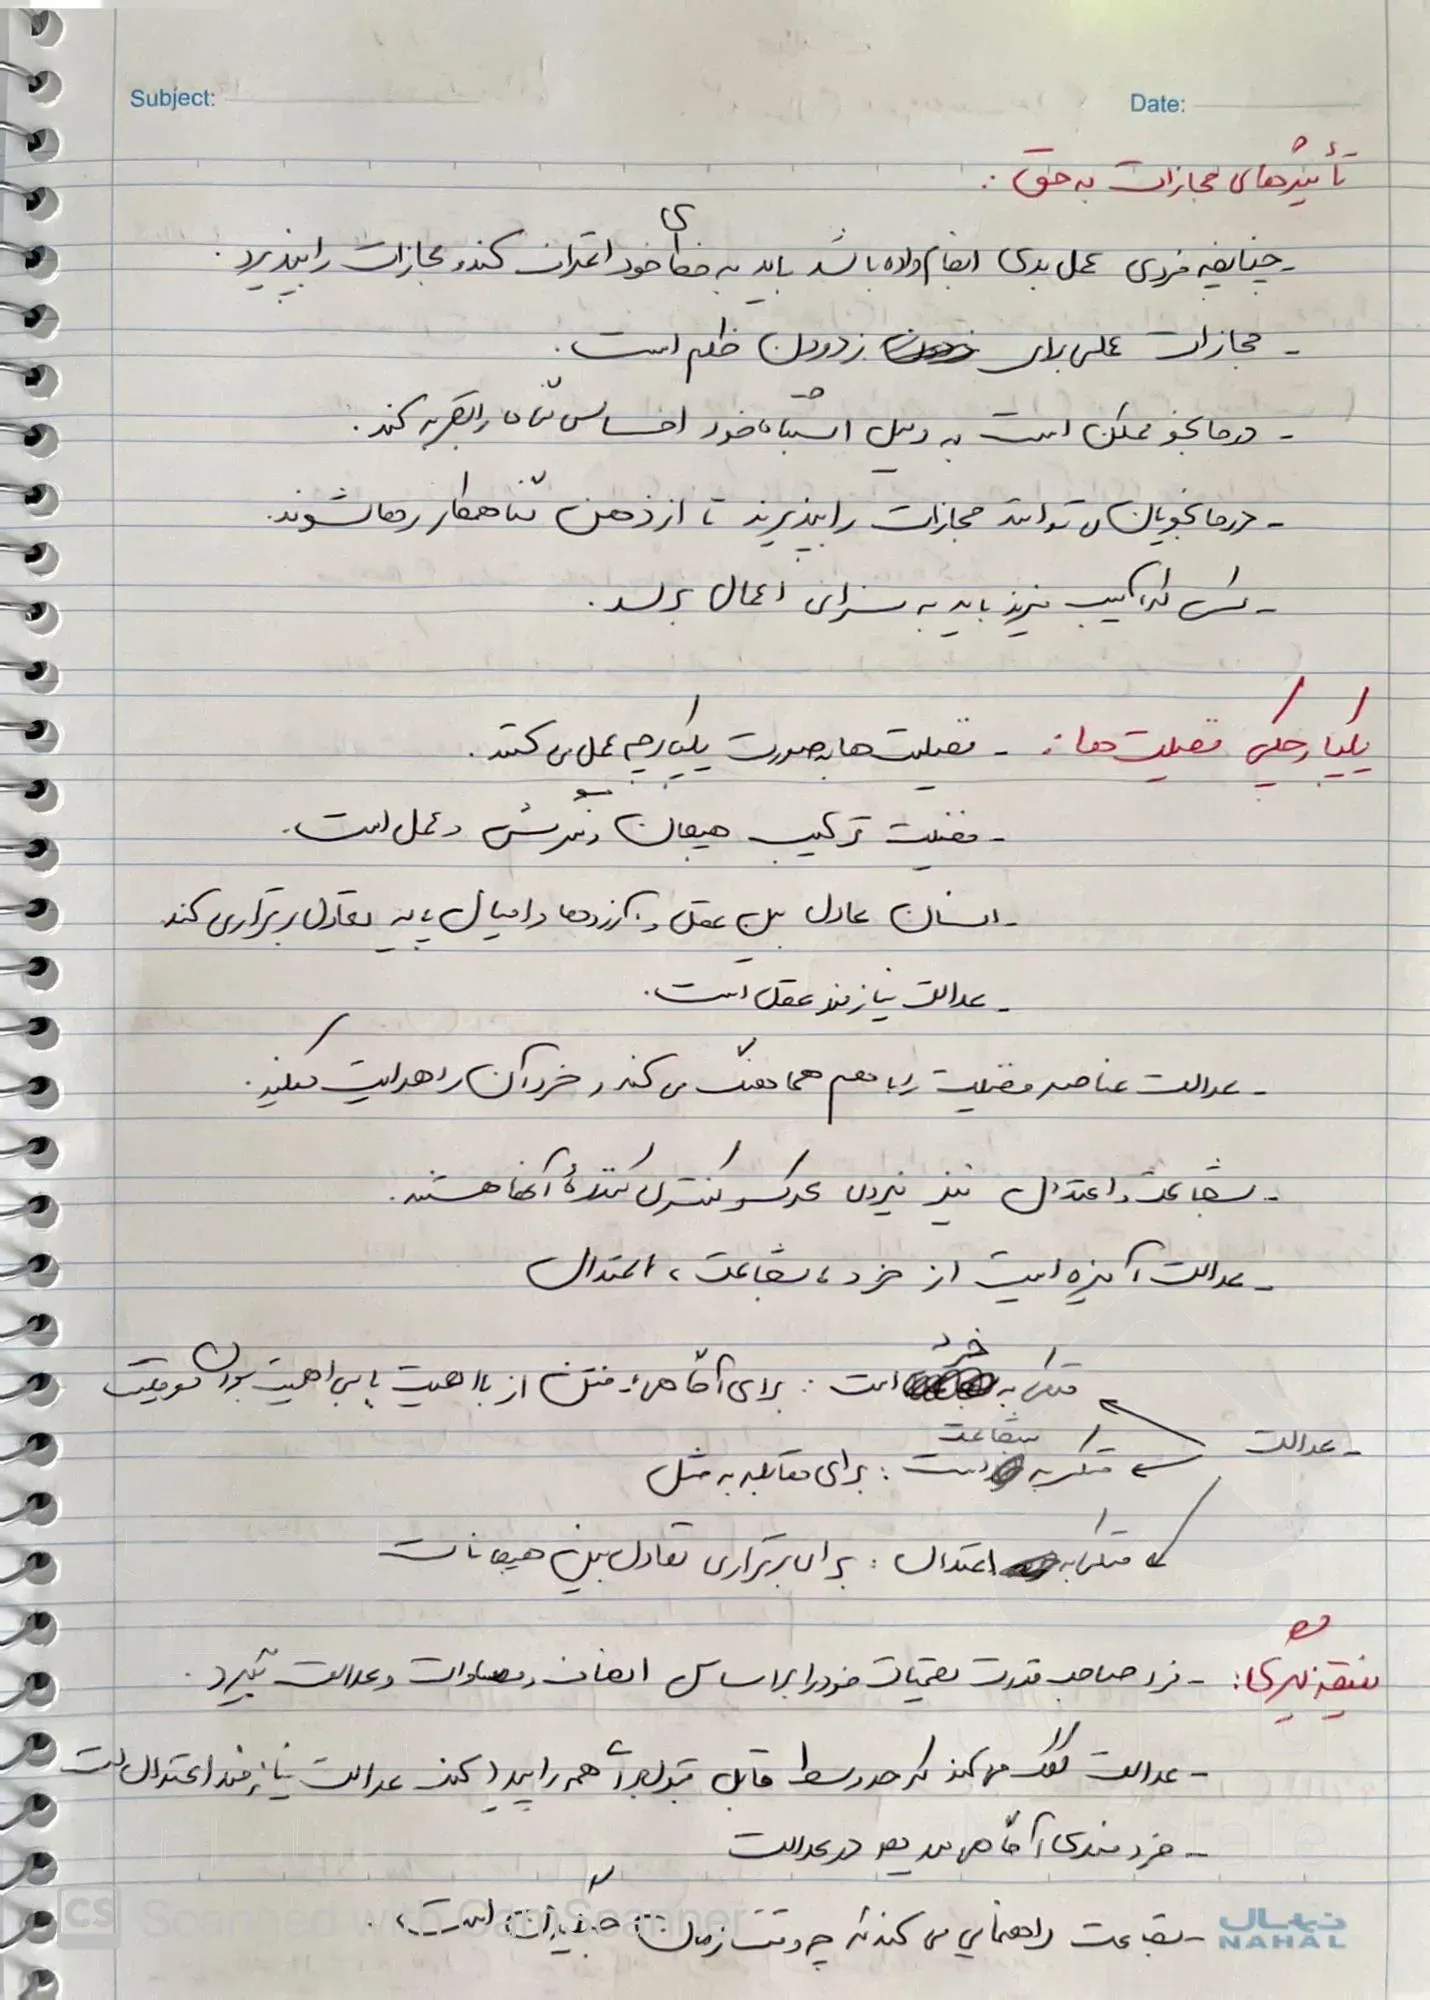 Subject:
Date:
تأثیرهای مجازات به حق :
- چنانچه فردی عمل بدی انجام داده باشد باید به خطای خود اعتراف کند و مجازات را بپذیرد .
- مجازات عملی برای زدودن ظلم است .
- درمانجو ممکن است به دلیل اشتباه خود احساس گناه را تجربه کند .
- درمانجویان می توانند مجازات را بپذیرند تا از ذهن گناهکار رها شوند .
- کسی که آسیب میزند باید به سزای اعمال برسد .
یکپارچگی فضیلت ها : - فضیلت ها به صورت یکپارچه عمل می کنند .
- فضیلت ترکیب هیجان و نگرش و عمل است .
- انسان عادل بین عقل و آرزوها و امیال پایه تعادل برقراری کند
- عدالت نیازمند عقل است .
- عدالت عناصر فضیلت را با هم هماهنگ می کند و خرد آن را هدایت میکند .
- شجاعت و اعتدال نیز نیروی محرک و کنترل کنندهٔ آنها هستند .
- عدالت آمیزه است از خرد ، شجاعت ، اعتدال
متکی به خرد است : برای آگاهی یافتن از بااهمیت یا بی اهمیت بودن موقعیت
- عدالت
متکی به شجاعت است : برای مقابله به مثل
متکی به اعتدال : برای برقراری تعادل بین هیجانات
نتیجه گیری : - فرد صاحب قدرت تصمیمات خود را بر اساس انصاف و مساوات و عدالت بگیرد .
- عدالت کمک می کند که حد وسط قابل قبول برای همه را پیدا کند عدالت نیازمند اعتدال است
- خردمندی آگاهی در عدالت
- شجاعت راهنمایی می کند که چه وقت زمان است .
نهال
NAHAL
CS Scanned with CamScanner